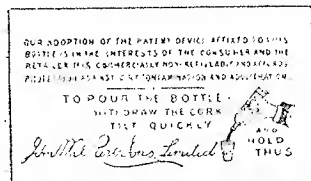 OUR ADOPTION OF THE PATENT DEVICE AFFIXED TO THIS
BOTTLE IS IN THE INTERESTS OF THE CONSUMER AND THE
RETAILER THIS COMMERCIALLY NON-REFILLABLE AND AFFORDS
PROTECTION AGAINST CONTAMINATION AND ADULTERATION.
TO POUR THE BOTTLE.
WITHDRAW THE CORK
TILT QUICKLY
AND
HOLD
THUS
Limited